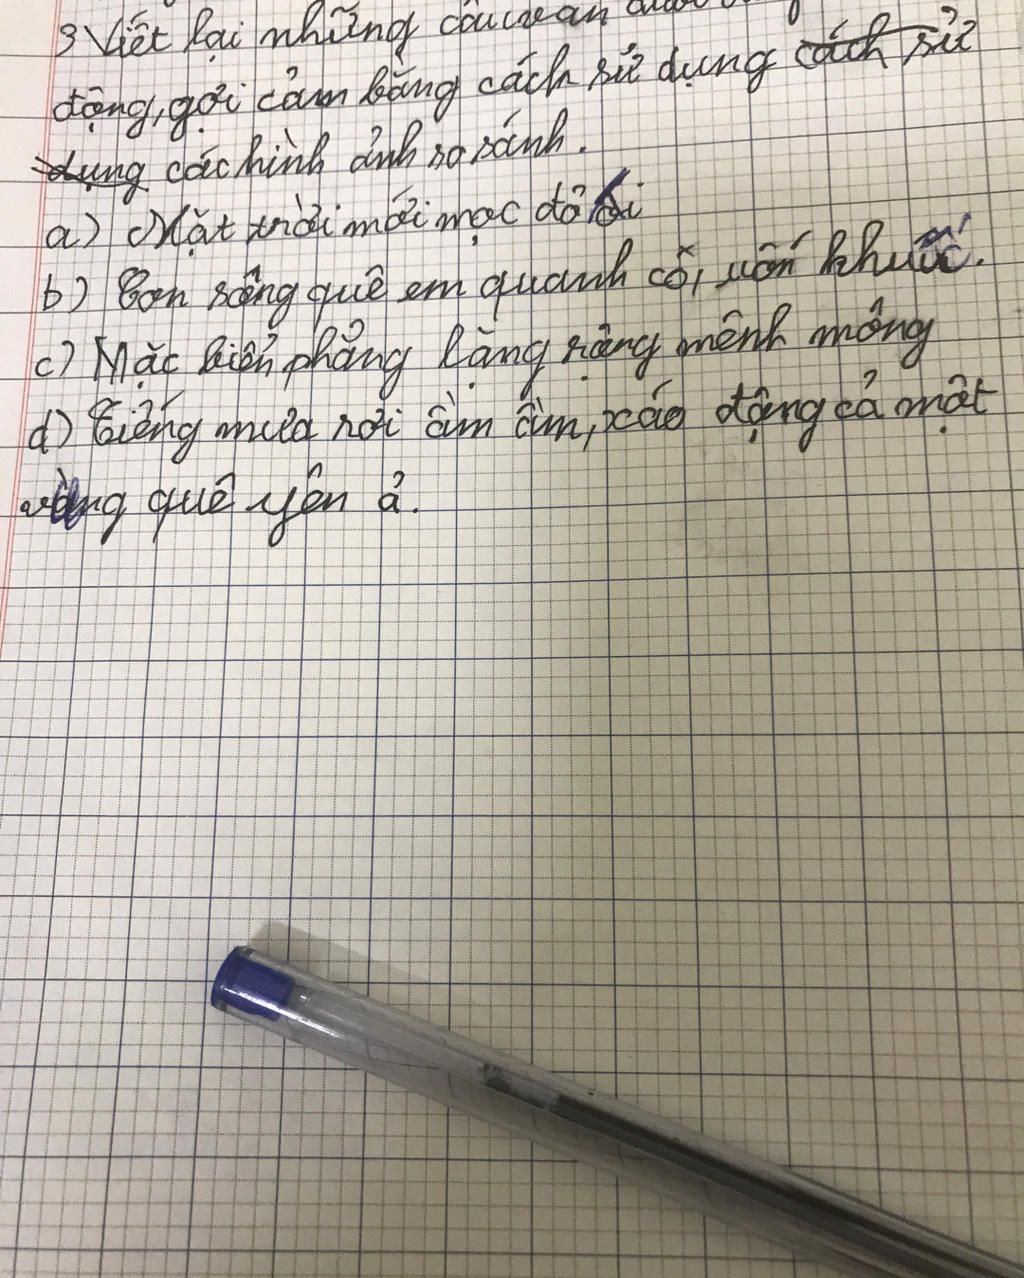 3 Viết lại những câu văn dưới
động, gợi cảm bằng cách sử dụng cách sử
dụng các hình ảnh so sánh.
a) Mặt trời mới mọc đỏ ối
b) Con sông quê em quanh co, uốn khúc.
c) Mặc biển phẳng lặng rộng mênh mông
d) Tiếng mưa rơi ầm ầm, xáo động cả một
vùng quê yên ả.